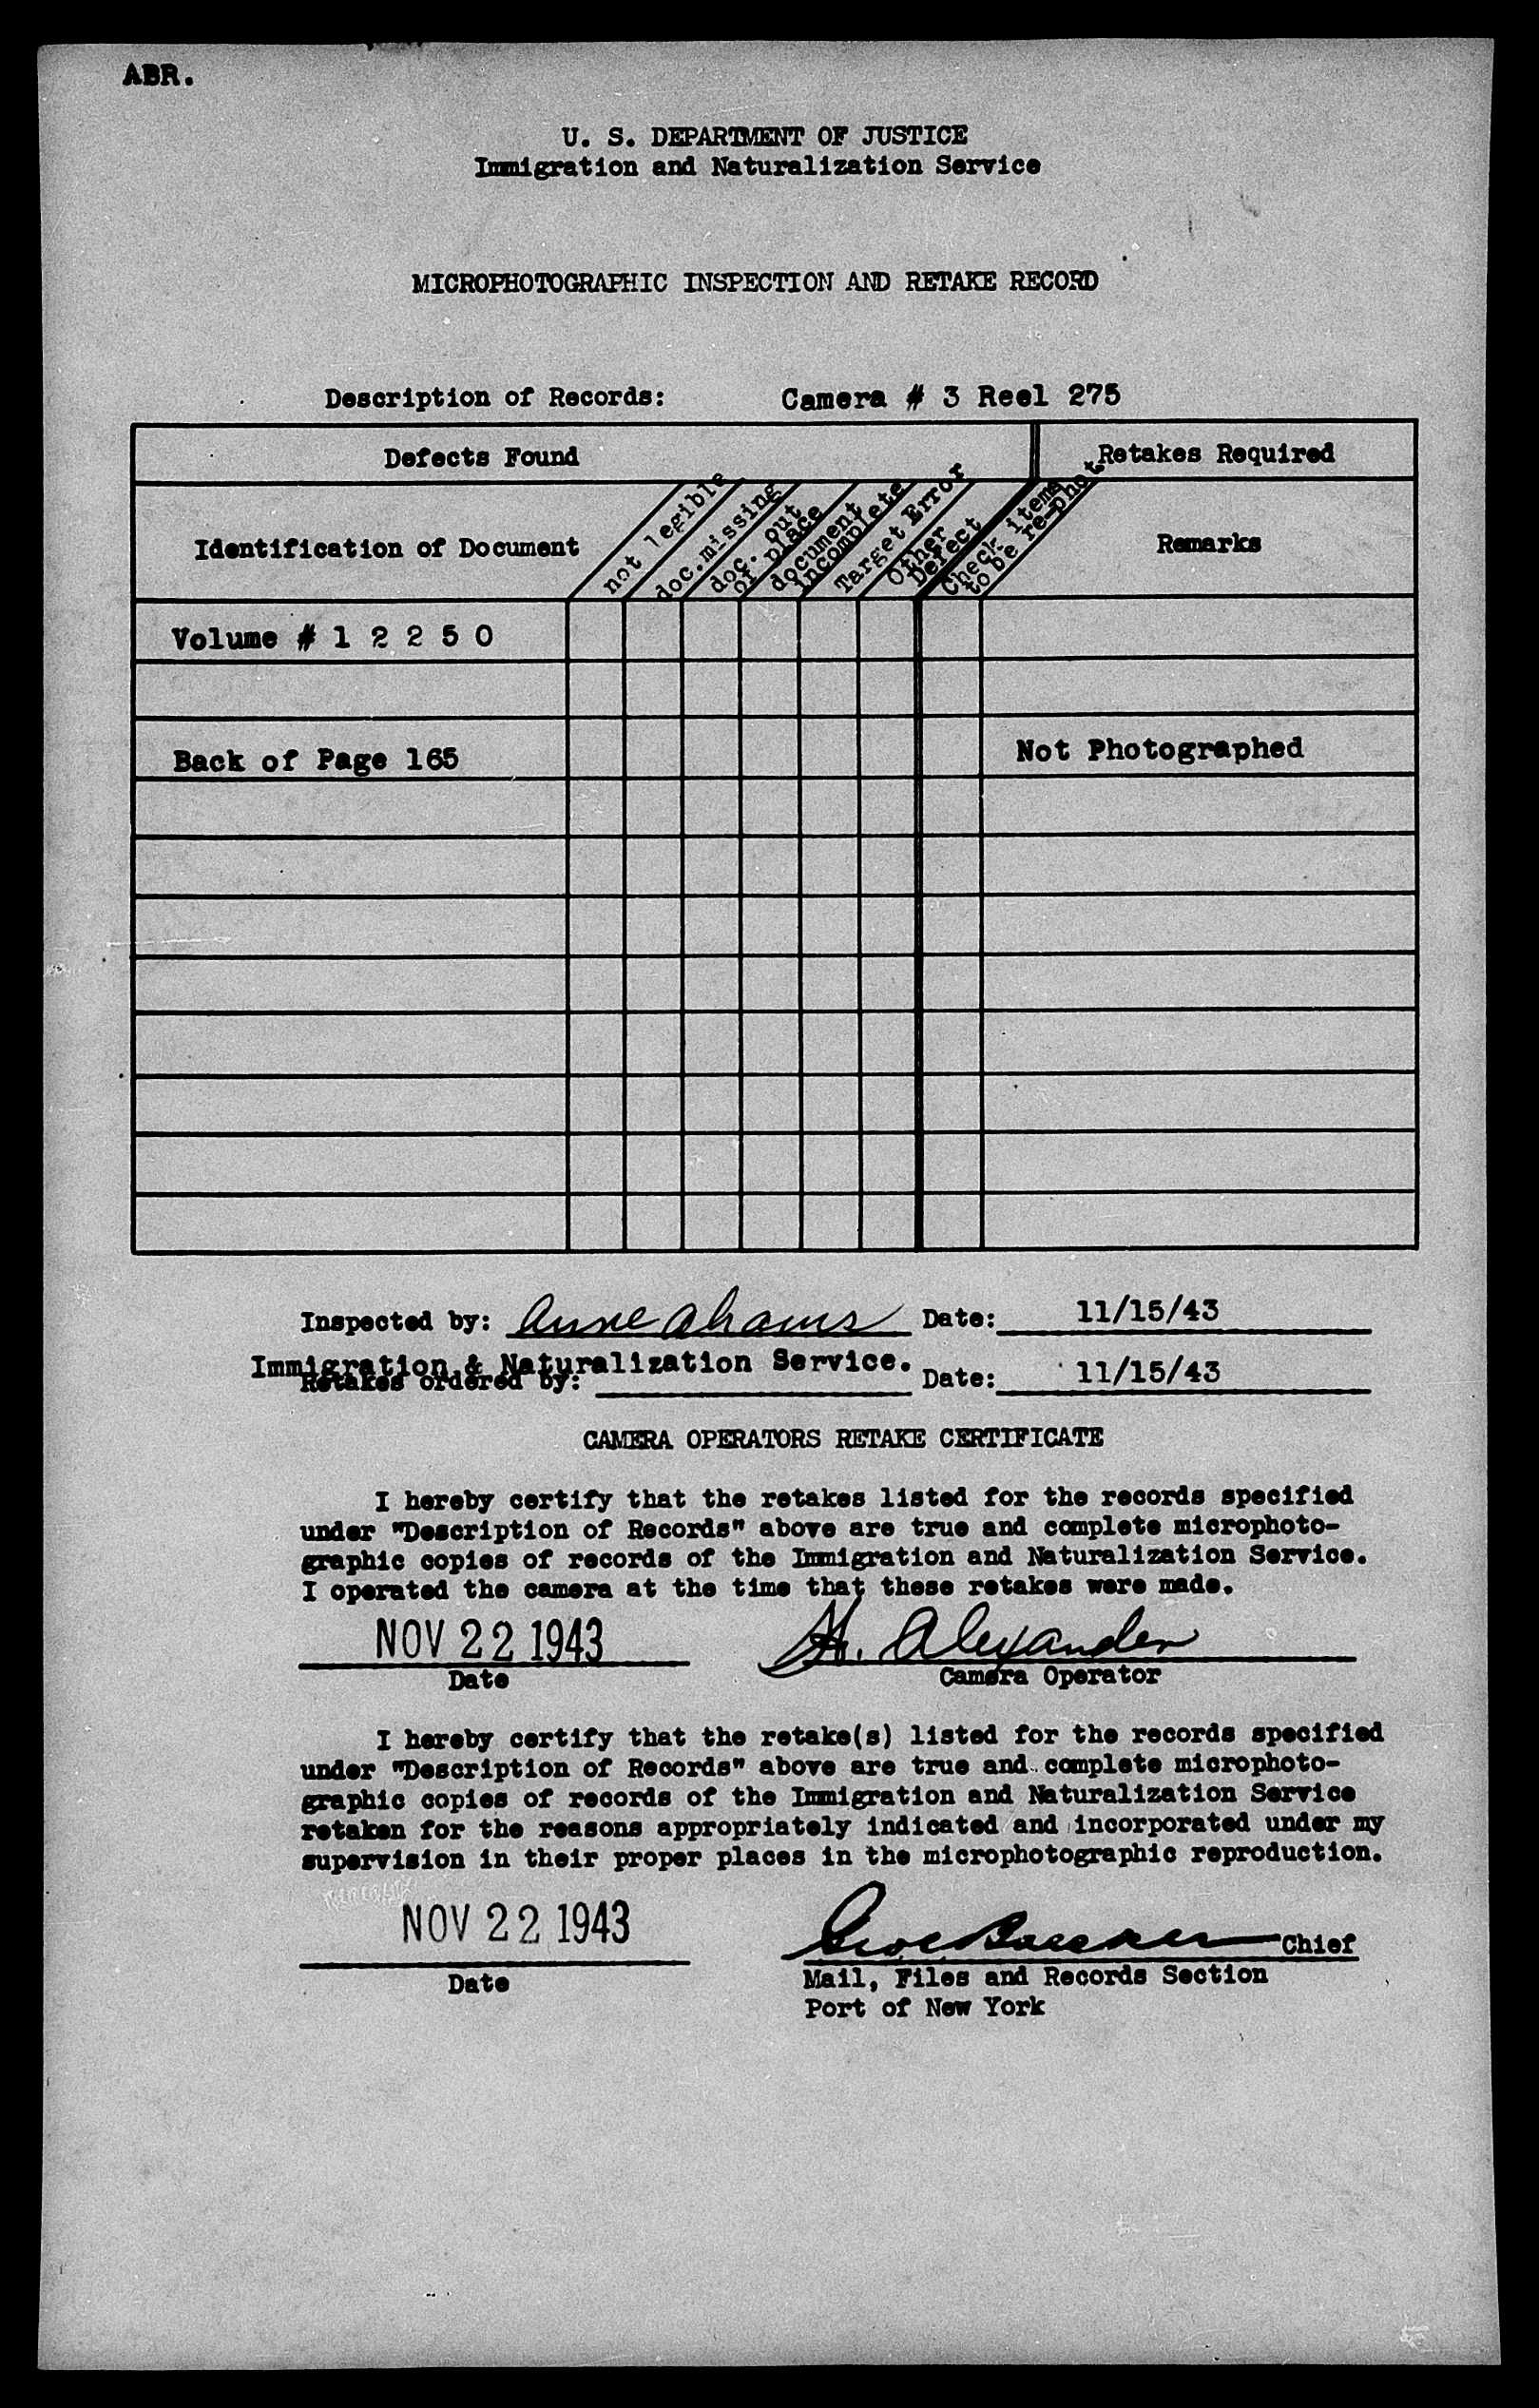 ABR.
U. S. DEPARTMENT OF JUSTICE
Immigration and Naturalization Service
MICROPHOTOGRAPHIC INSPECTION AND RETAKE RECORD
Description of Records: Camera # 3 Reel 275
Defects Found
Retakes Required
Identification of Document
not legible
doc.missing
doc. out
of place
document
incomplete
Target Error
Other
Defect
Check items
to be re-phot.
Remarks
Volume # 1 2 2 5 0
Back of Page 165
Not Photographed
Inspected by: Anne Ahams Date: 11/15/43
Immigration & Naturalization Service.
Retakes ordered by: Date: 11/15/43
CAMERA OPERATORS RETAKE CERTIFICATE
I hereby certify that the retakes listed for the records specified
under "Description of Records" above are true and complete microphoto-
graphic copies of records of the Immigration and Naturalization Service.
I operated the camera at the time that these retakes were made.
NOV 22 1943 H. Alexander
Date Camera Operator
I hereby certify that the retake(s) listed for the records specified
under "Description of Records" above are true and complete microphoto-
graphic copies of records of the Immigration and Naturalization Service
retaken for the reasons appropriately indicated and incorporated under my
supervision in their proper places in the microphotographic reproduction.
NOV 22 1943 Chief
Date
Mail, Files and Records Section
Port of New York